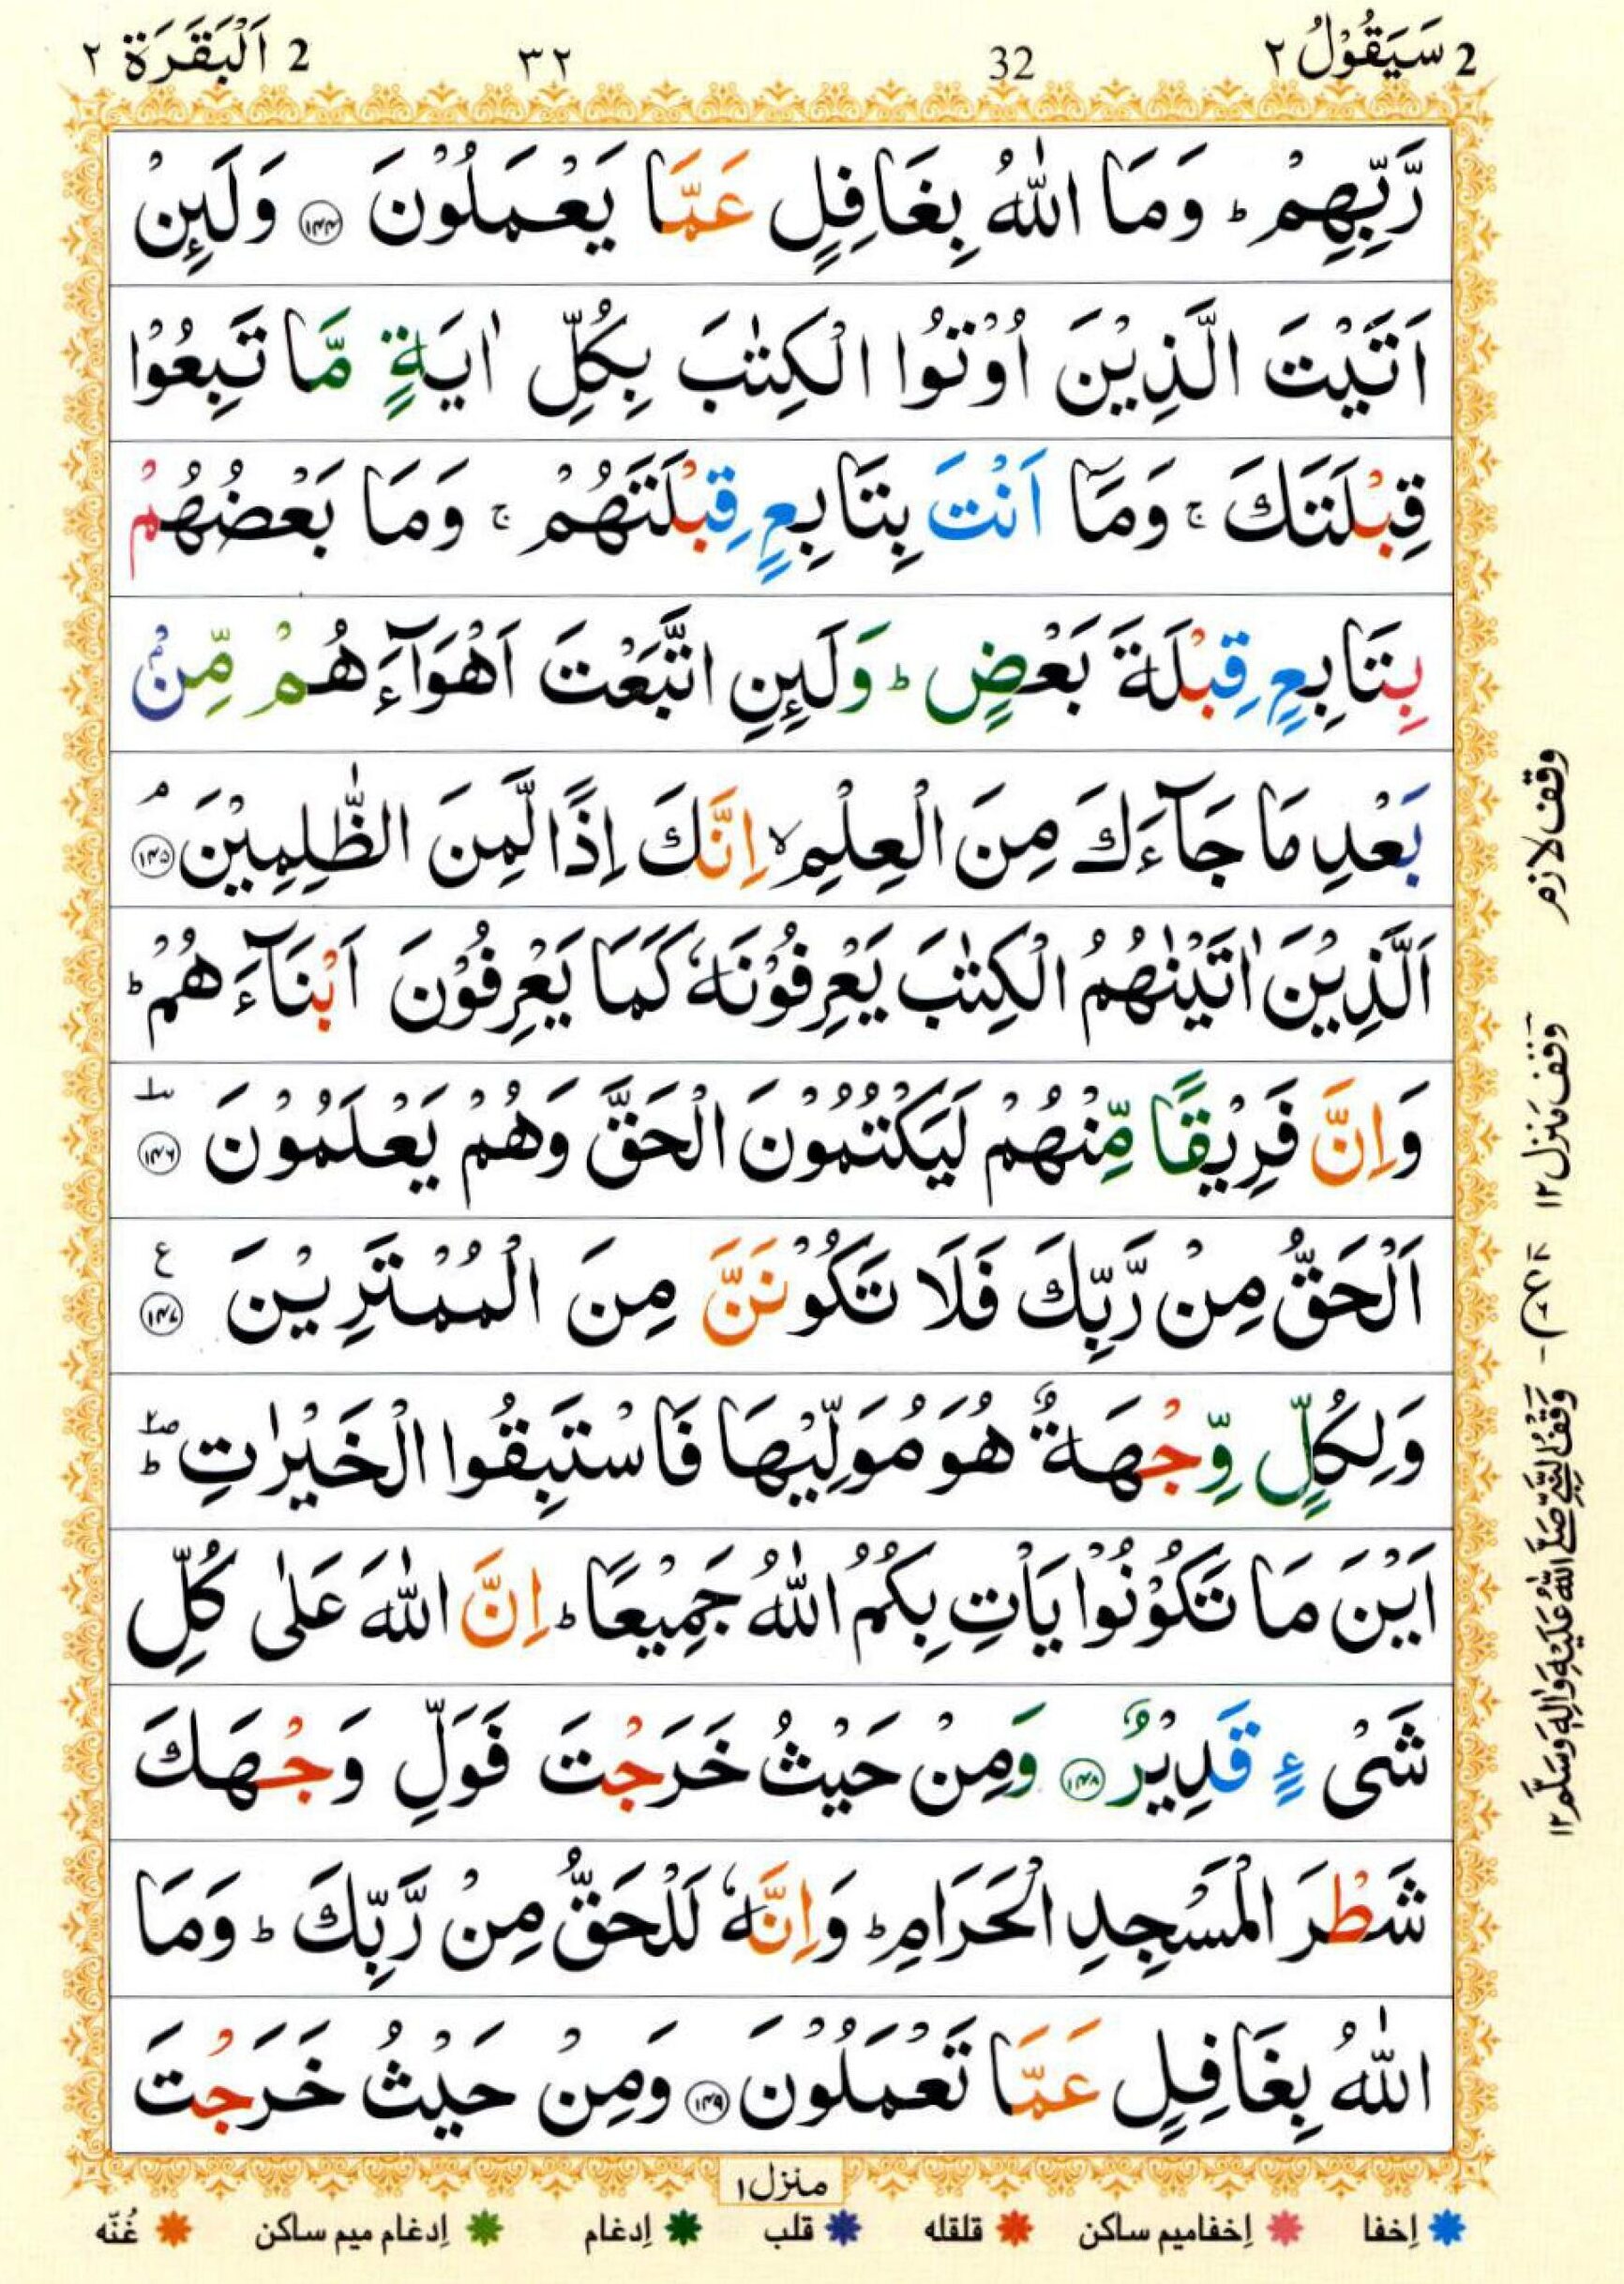 2 سَيَقُوْلُ ٢ 32 ٣٢ 2 اَلْبَقَرَة ٢
رَّبِّهِمْ ؕ وَمَا اللّٰهُ بِغَافِلٍ عَمَّا يَعْمَلُوْنَ ﴿١٤٤﴾ وَلَئِنْ
اَتَيْتَ الَّذِيْنَ اُوْتُوا الْكِتٰبَ بِكُلِّ اٰيَةٍ مَّا تَبِعُوْا
قِبْلَتَكَ ۚ وَمَاۤ اَنْتَ بِتَابِعٍ قِبْلَتَهُمْ ۚ وَمَا بَعْضُهُمْ
بِتَابِعٍ قِبْلَةَ بَعْضٍ ؕ وَلَئِنِ اتَّبَعْتَ اَهْوَآءَهُمْ مِّنْۢ
بَعْدِ مَا جَآءَكَ مِنَ الْعِلْمِ ۙ اِنَّكَ اِذًا لَّمِنَ الظّٰلِمِيْنَ ۘ ﴿١٤٥﴾
اَلَّذِيْنَ اٰتَيْنٰهُمُ الْكِتٰبَ يَعْرِفُوْنَهٗ كَمَا يَعْرِفُوْنَ اَبْنَآءَهُمْ ؕ
وَاِنَّ فَرِيْقًا مِّنْهُمْ لَيَكْتُمُوْنَ الْحَقَّ وَهُمْ يَعْلَمُوْنَ ﴿١٤٦﴾
اَلْحَقُّ مِنْ رَّبِّكَ فَلَا تَكُوْنَنَّ مِنَ الْمُمْتَرِيْنَ ع ﴿١٤٧﴾
وَلِكُلٍّ وِّجْهَةٌ هُوَ مُوَلِّيْهَا فَاسْتَبِقُوا الْخَيْرٰتِ ؕ
اَيْنَ مَا تَكُوْنُوْا يَاْتِ بِكُمُ اللّٰهُ جَمِيْعًا ؕ اِنَّ اللّٰهَ عَلٰى كُلِّ
شَىْءٍ قَدِيْرٌ ﴿١٤٨﴾ وَمِنْ حَيْثُ خَرَجْتَ فَوَلِّ وَجْهَكَ
شَطْرَ الْمَسْجِدِ الْحَرَامِ ؕ وَاِنَّهٗ لَلْحَقُّ مِنْ رَّبِّكَ ؕ وَمَا
اللّٰهُ بِغَافِلٍ عَمَّا تَعْمَلُوْنَ ﴿١٤٩﴾ وَمِنْ حَيْثُ خَرَجْتَ
وقف لازم
وَقْف مَنزل ١٢
وَقْفُ النَّبِيِّ صَلَّى اللّٰهُ عَلَيْهِ وَاٰلِهٖ وَسَلَّمَ ١٢
منزل ١
اِخفا
اِخفامیم ساکن
قلقله
قلب
اِدغام
اِدغام میم ساکن
غُنّه